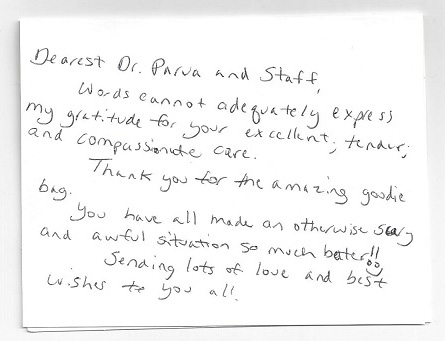 Dearest Dr. Parva and Staff,
Words cannot adequately express
my gratitude for your excellent, tender,
and compassionate care.
Thank you for the amazing goodie
bag.
You have all made an otherwise scary
and awful situation so much better!!
Sending lots of love and best
wishes to you all!